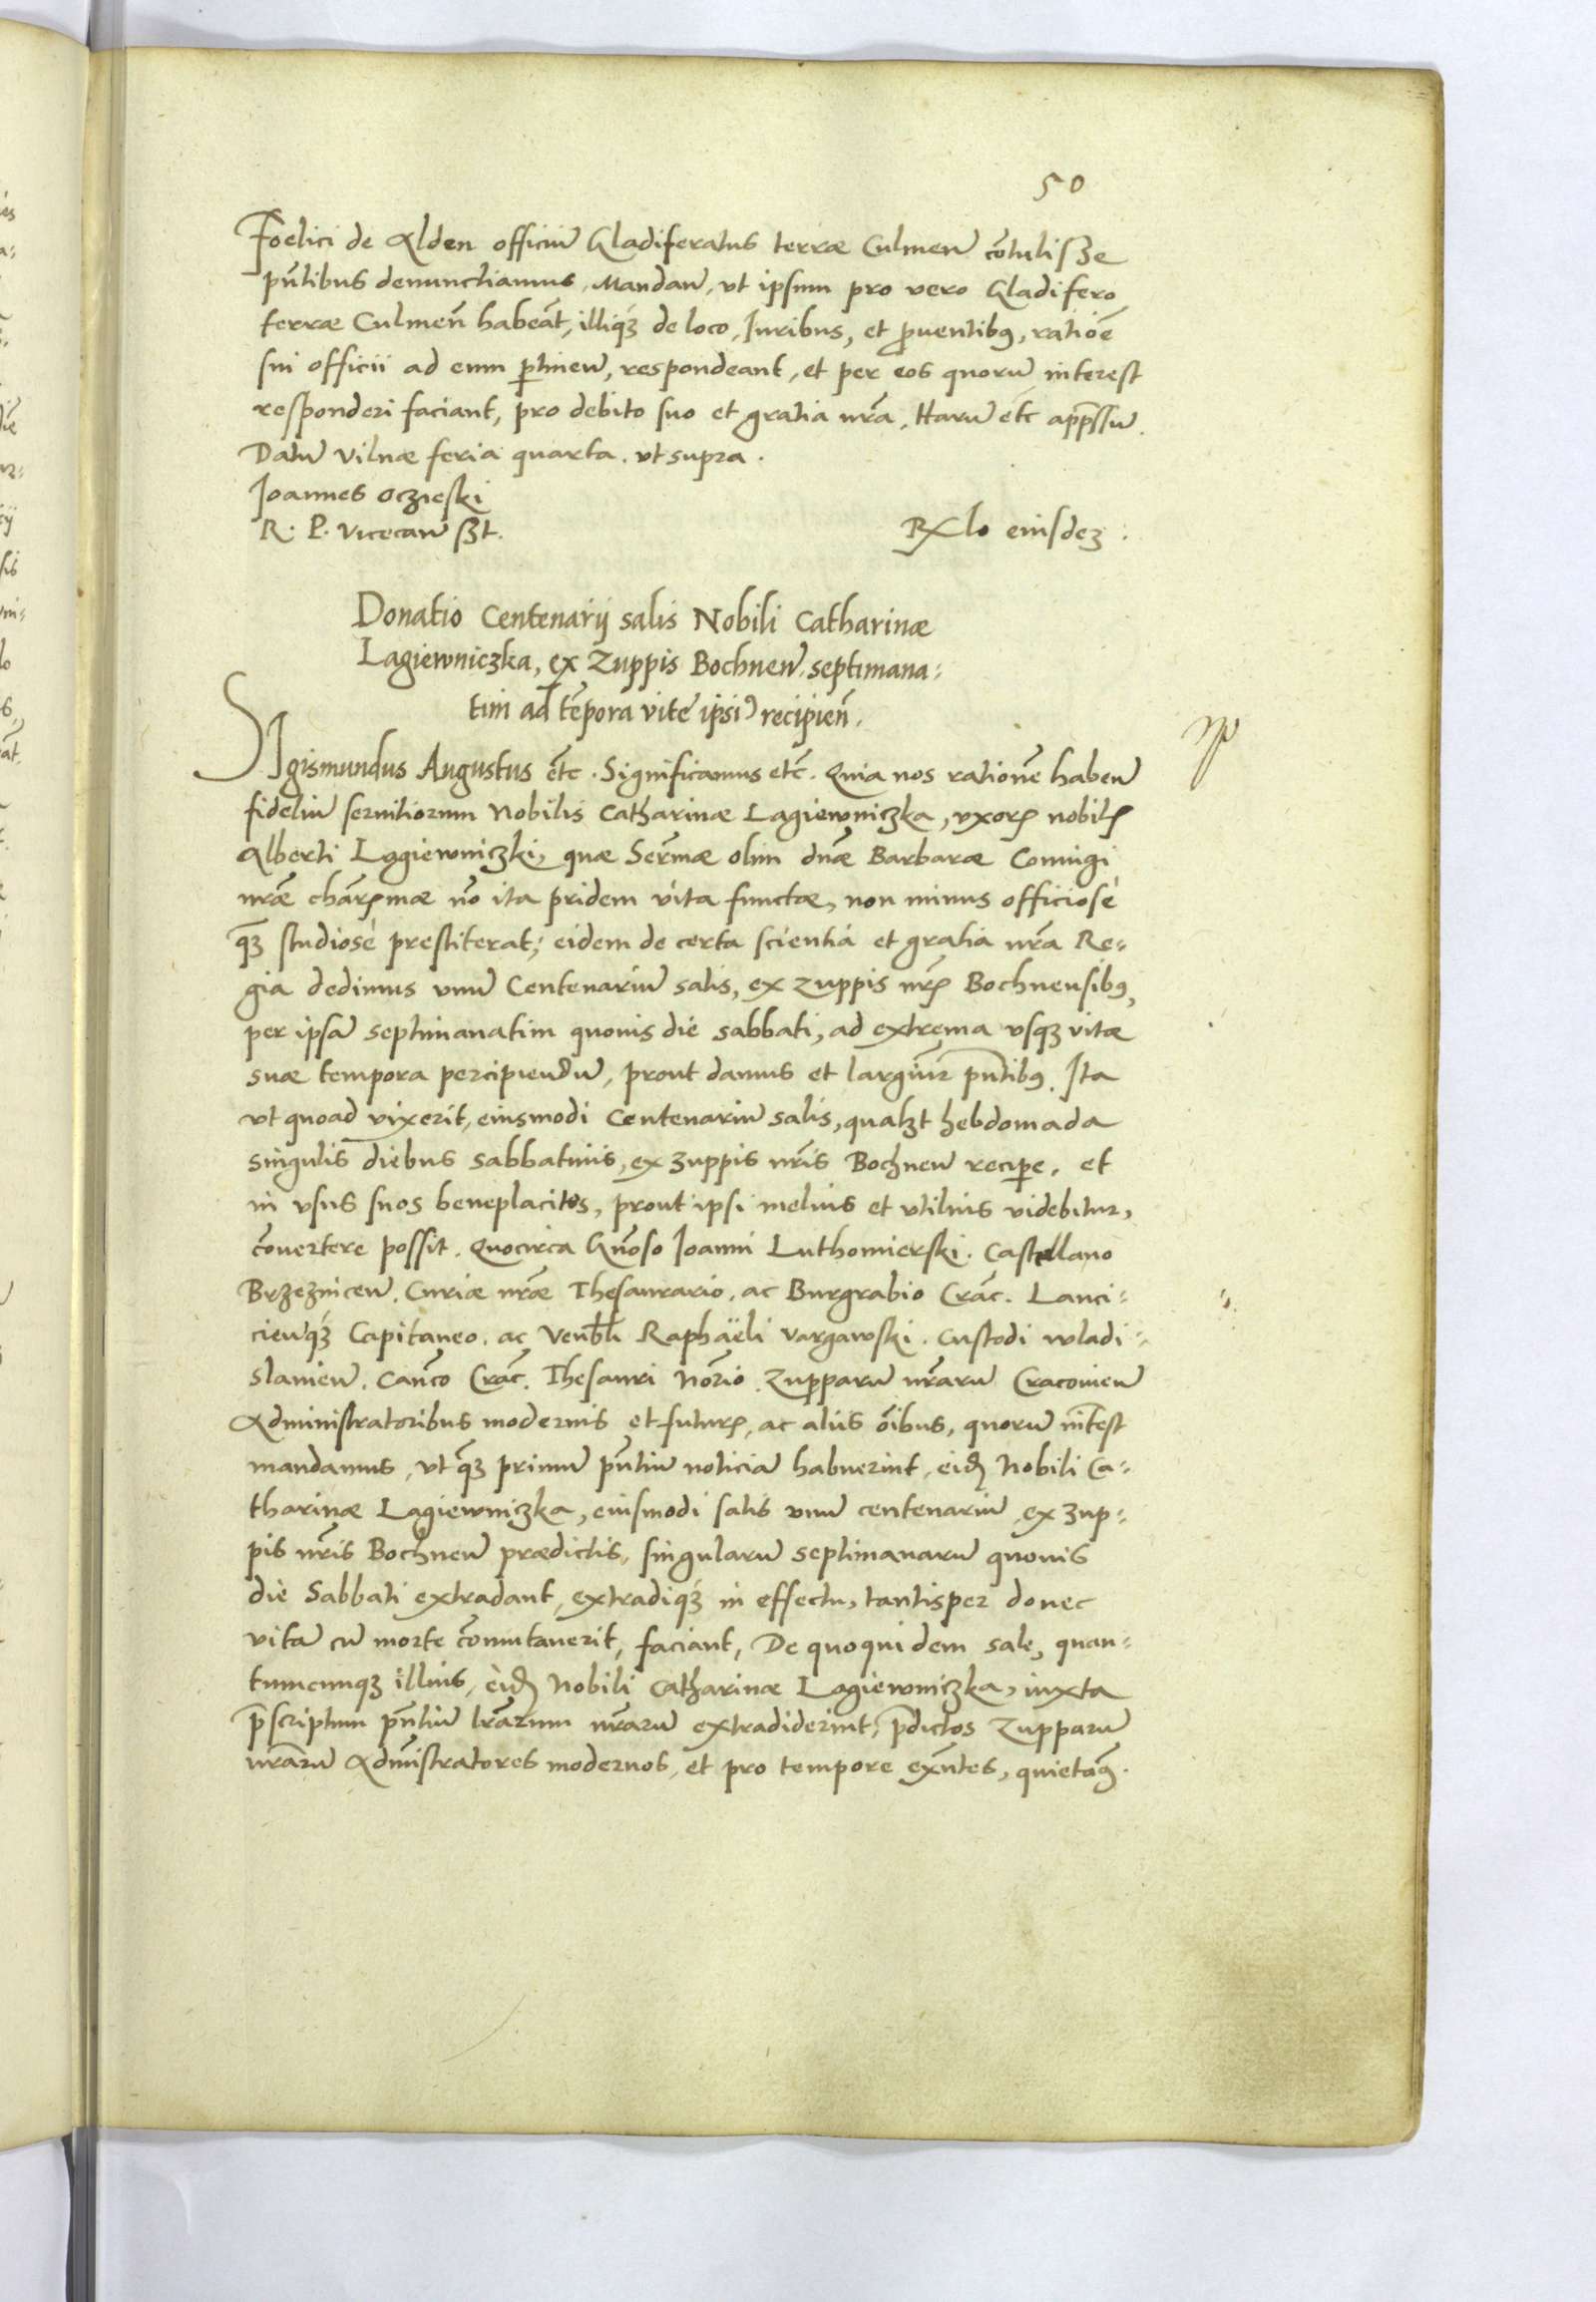 50
Foelici de Alden officiũ Gladiferatus terræ Culmeñ cõtulisse
pñtibus denunctiamus, Mandañ, vt ipsum pro vero Gladifero
terræ Culmeñ habeãt, illiq3 de loco, Iuribus, et ꝓuentib9, ratiõe
sui officii ad eum ꝑtineñ, respondeant, et per eos quorũ interest
responderi faciant, pro debito suo et gratia nr̃a, Harũ etc̃ app̃ssũ.
Datũ Vilnæ feria quarta. vt supra.
Joannes Oczieski
R. P. Vicecañ sst.
Rlo eiusdez.
Donatio Centenarij salis Nobili Catharinæ
Lagiewniczka, ex Zuppis Bochneñ, septimana=
tim ad tẽpora vitę ipsi9 recipieñ.
SIgismundus Augustus etc̃. Significamus etc̃. Quia nos rationẽ habeñ
fideliũ seruitiorum Nobilis Catharinæ Lagiewniczka, vxorꝭ nobilꝭ
Alberti Lagiewniczki, quæ Ser̃mæ olim dñæ Barbaræ Coniugi
nr̃æ chãrꝭmæ nõ ita pridem vita functæ, non minus officiosè
q̃3 studiosè prestiterat; eidem de certa scientia et gratia nr̃a Re=
gia dedimus vnũ Centenariũ salis, ex zuppis nr̃ꝭ Bochnensib9,
per ipsã septimanatim quouis die sabbati, ad extrema vsq3 vitæ
suæ tempora percipiendũ, prout damus et largim̃r pñtib9. Ita
vt quoad vixerit, eiusmodi Centenariũ salis, qual3t hebdomada
singulis diebus sabbatinis, ex zuppis nr̃is Bochneñ recipe, et
in vsus suos beneplacitos, prout ipsi melius et vtilius videbitur,
cõuertere possit. Quocirca Gñoso Joanni Luthomierski. Castellano
Brzezniceñ. Curiæ nr̃æ Thesaurario, ac Burgrabio Crac̃. Lanci=
cieñq3 Capitaneo. ac Venbli Raphäeli Vargawski. Custodi wladi=
slauieñ. Can̄co Crac̃. Thesauri Nõrio. Zupparũ nr̃arũ Cracouieñ
Administratoribus modernis et futurꝭ, ac aliis õibus, quorũ int̃est
mandamus, vt q̃3 primũ pñtiũ noticiã habuerint, eidꝭ Nobili Ca=
tharinæ Lagiewniczka, eiusmodi salis vnũ centenariũ ex zup=
pis nr̃is Bochneñ prædictis, singularũ septimanarũ quouis
die Sabbati extradant, extradiq3 in effectu, tantisper donec
vitã cũ morte cõmutauerit, faciant, De quoquidem sale, quan=
tumcunq3 illius, eidꝭ Nobili Catharinæ Lagiewniczka, iuxta
p̃scriptum pñtiũ lr̃arum nr̃arũ extradiderint, p̃dictos Zupparũ
nr̃arũ Administratores modernos, et pro tempore exñtes, quietãq3.